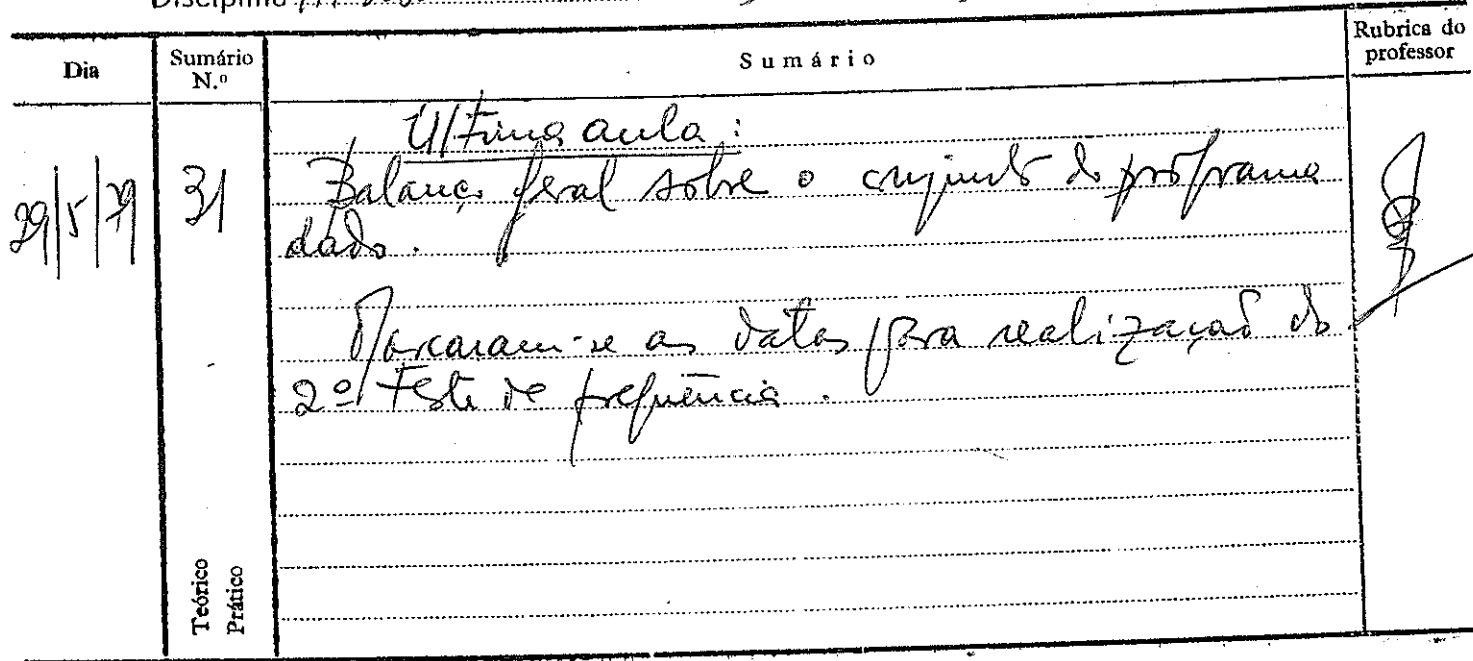 Disciplina
Dia
Sumário N.º
Sumário
Rubrica do professor
29/5/79
31
Última aula:
Balanço geral sobre o conjunto do programa
dado.
Marcaram-se as datas para realização do
2º Teste de frequência.
Teórico
Prático